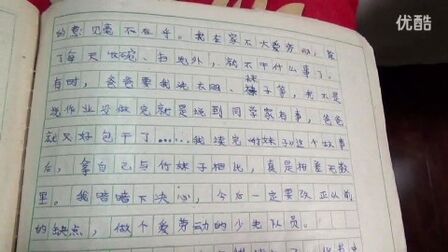 优酷
的意思毫不在乎。我在家不大爱劳动，除
了每天吃碗、扫地外，就不干什么事了。
有时，爸爸要我洗衣服、袜子等，我不是
说作业没做完就是说到同学家有事，爸爸
就又好包干了……我读完《竹妹子》这个故事
后，拿自己与竹妹子相比，真是相差无数
里。我暗暗下决心，今后一定要改正以前
的缺点，做个爱劳动的少先队员。